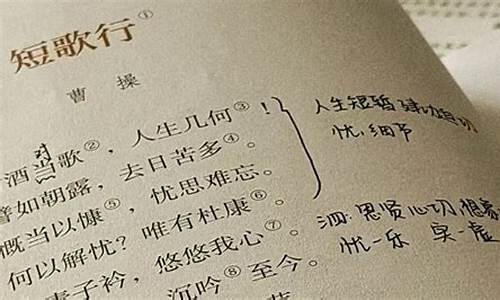 短歌行①
曹操
酒当歌②，人生几何③！
譬如朝露，去日苦多④。
慨当以慷⑤，忧思难忘。
何以解忧？唯有杜康⑥。
青子衿，悠悠我心⑦。
沉吟⑧至今。
人生短暂 建功
忧.细节
思贤心切
忧—乐 实—虚